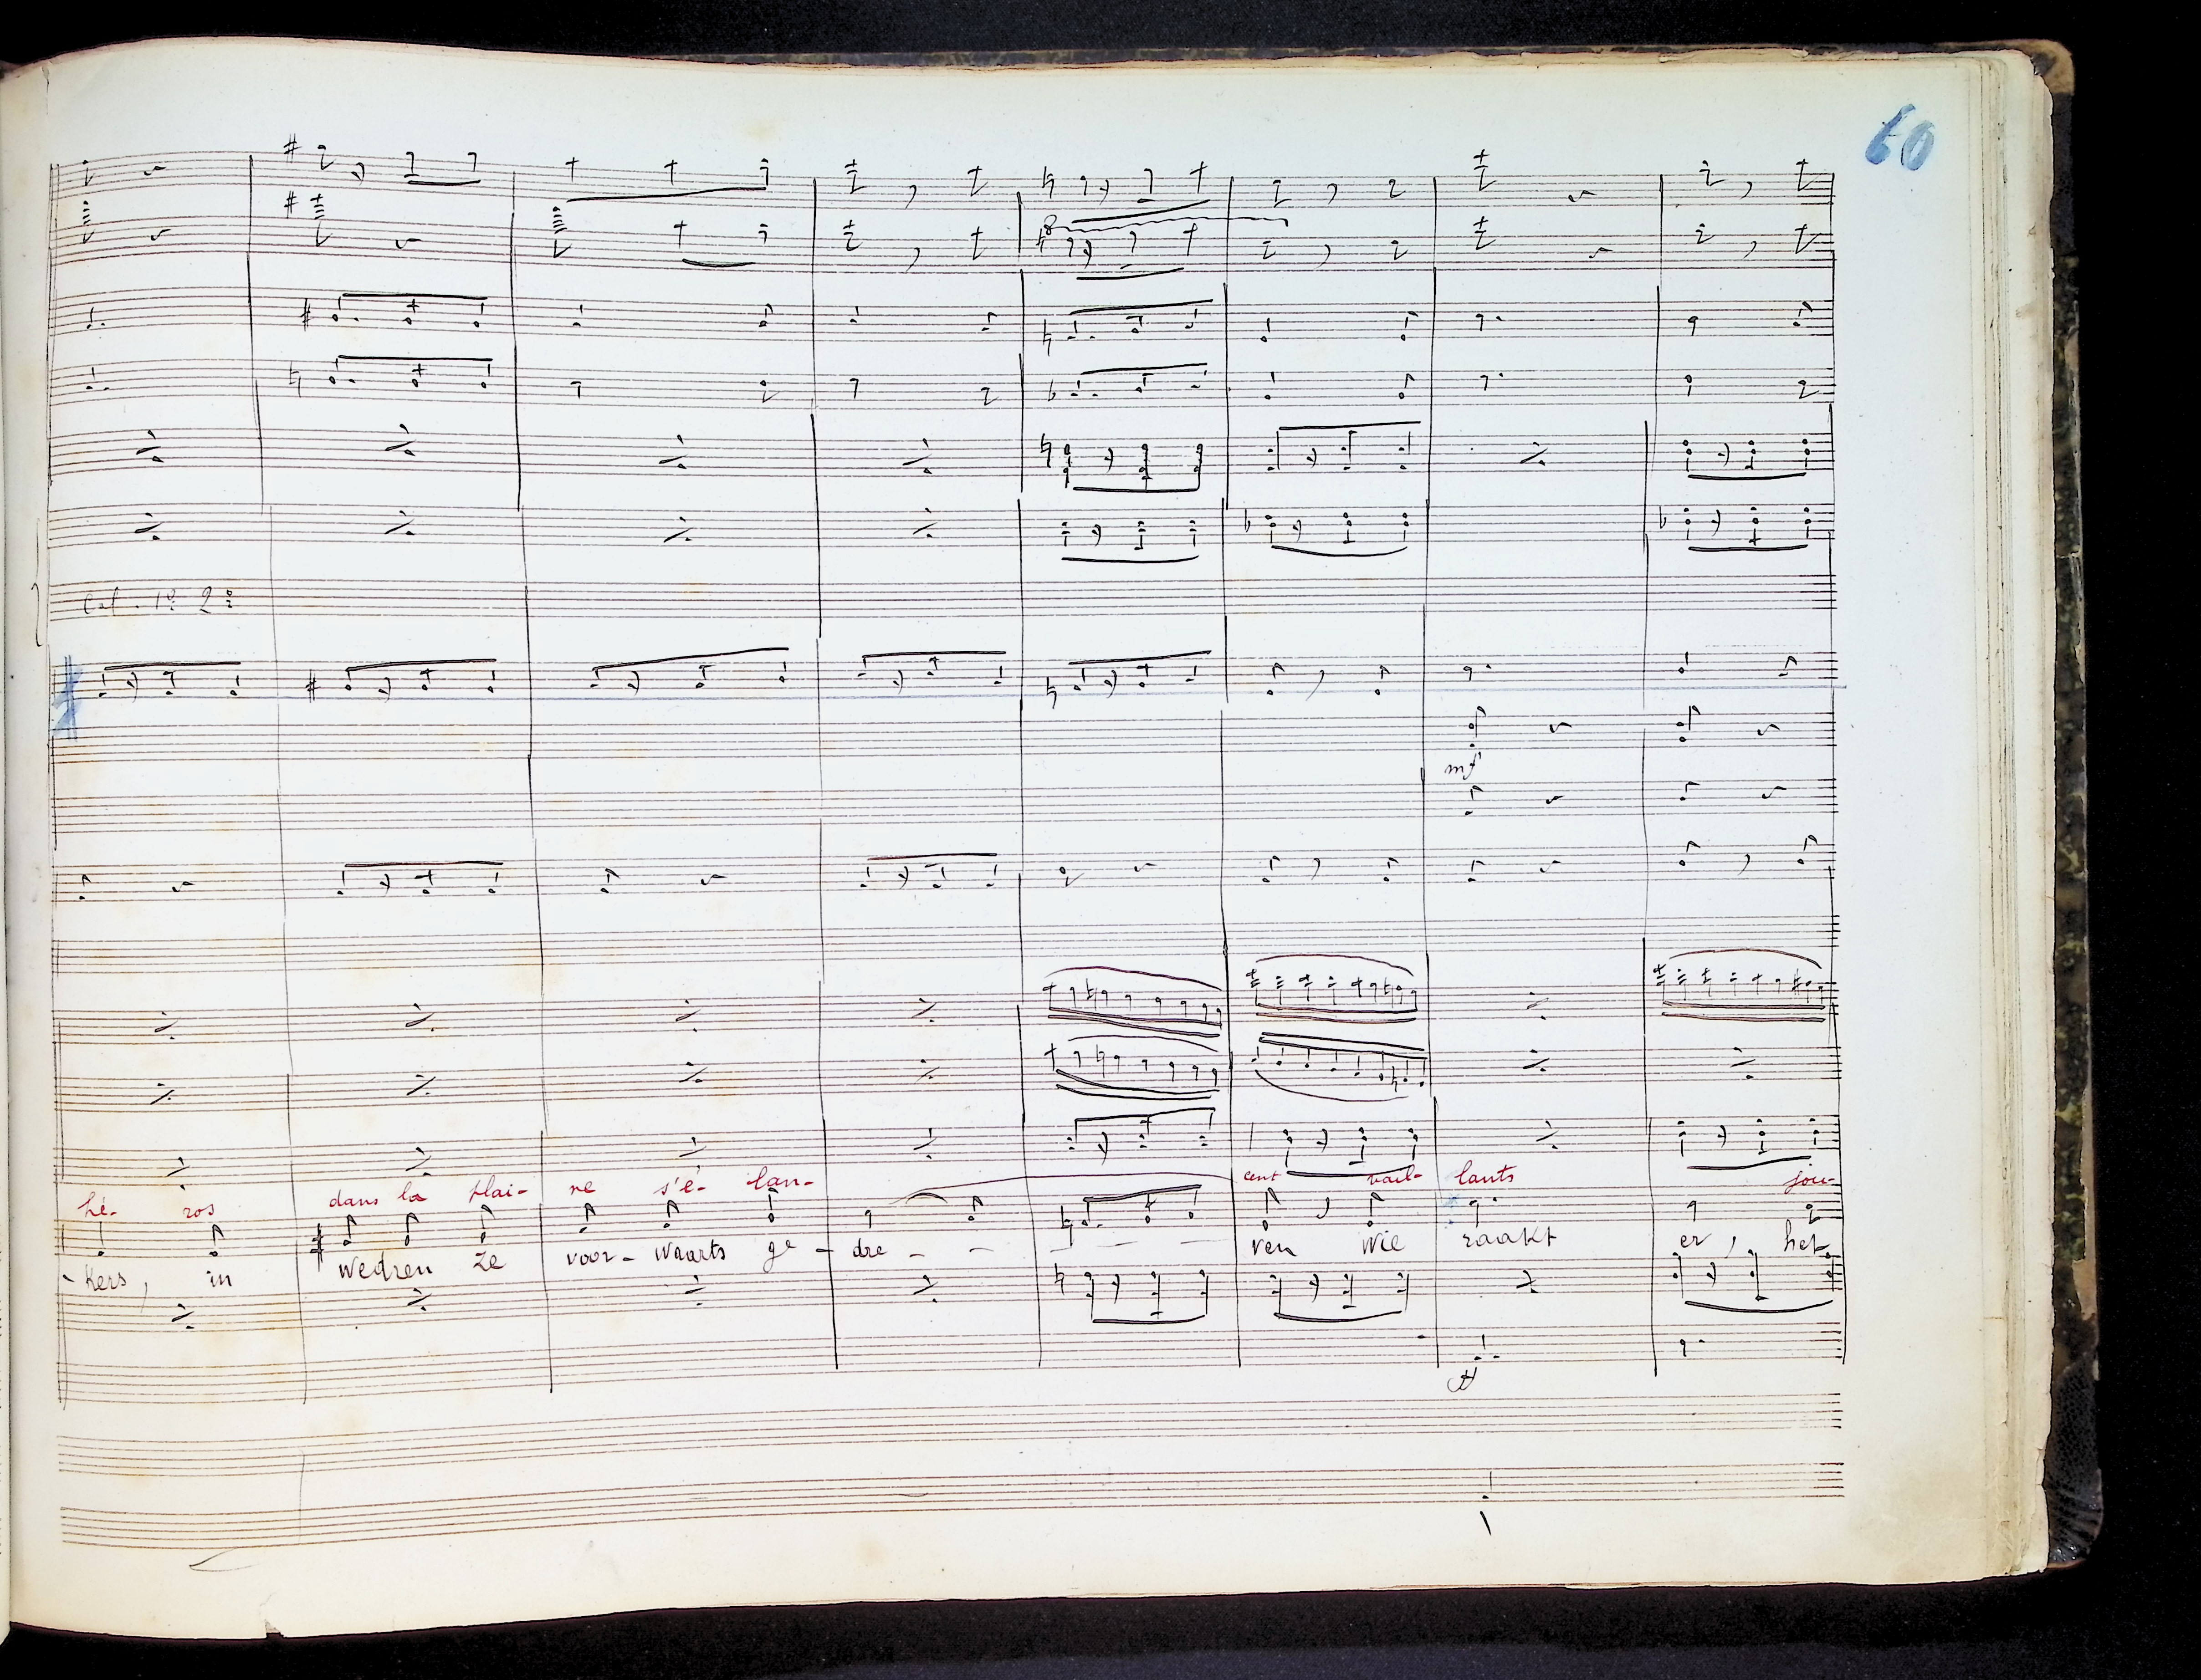 60
Col. 1º 2º
mf
hé- ros dans la plai- ne s'é- lan- cent vail- lants jou-
- kers, in wedren ze voor - waarts ge - dre - - - - - ven wie raakt er, het